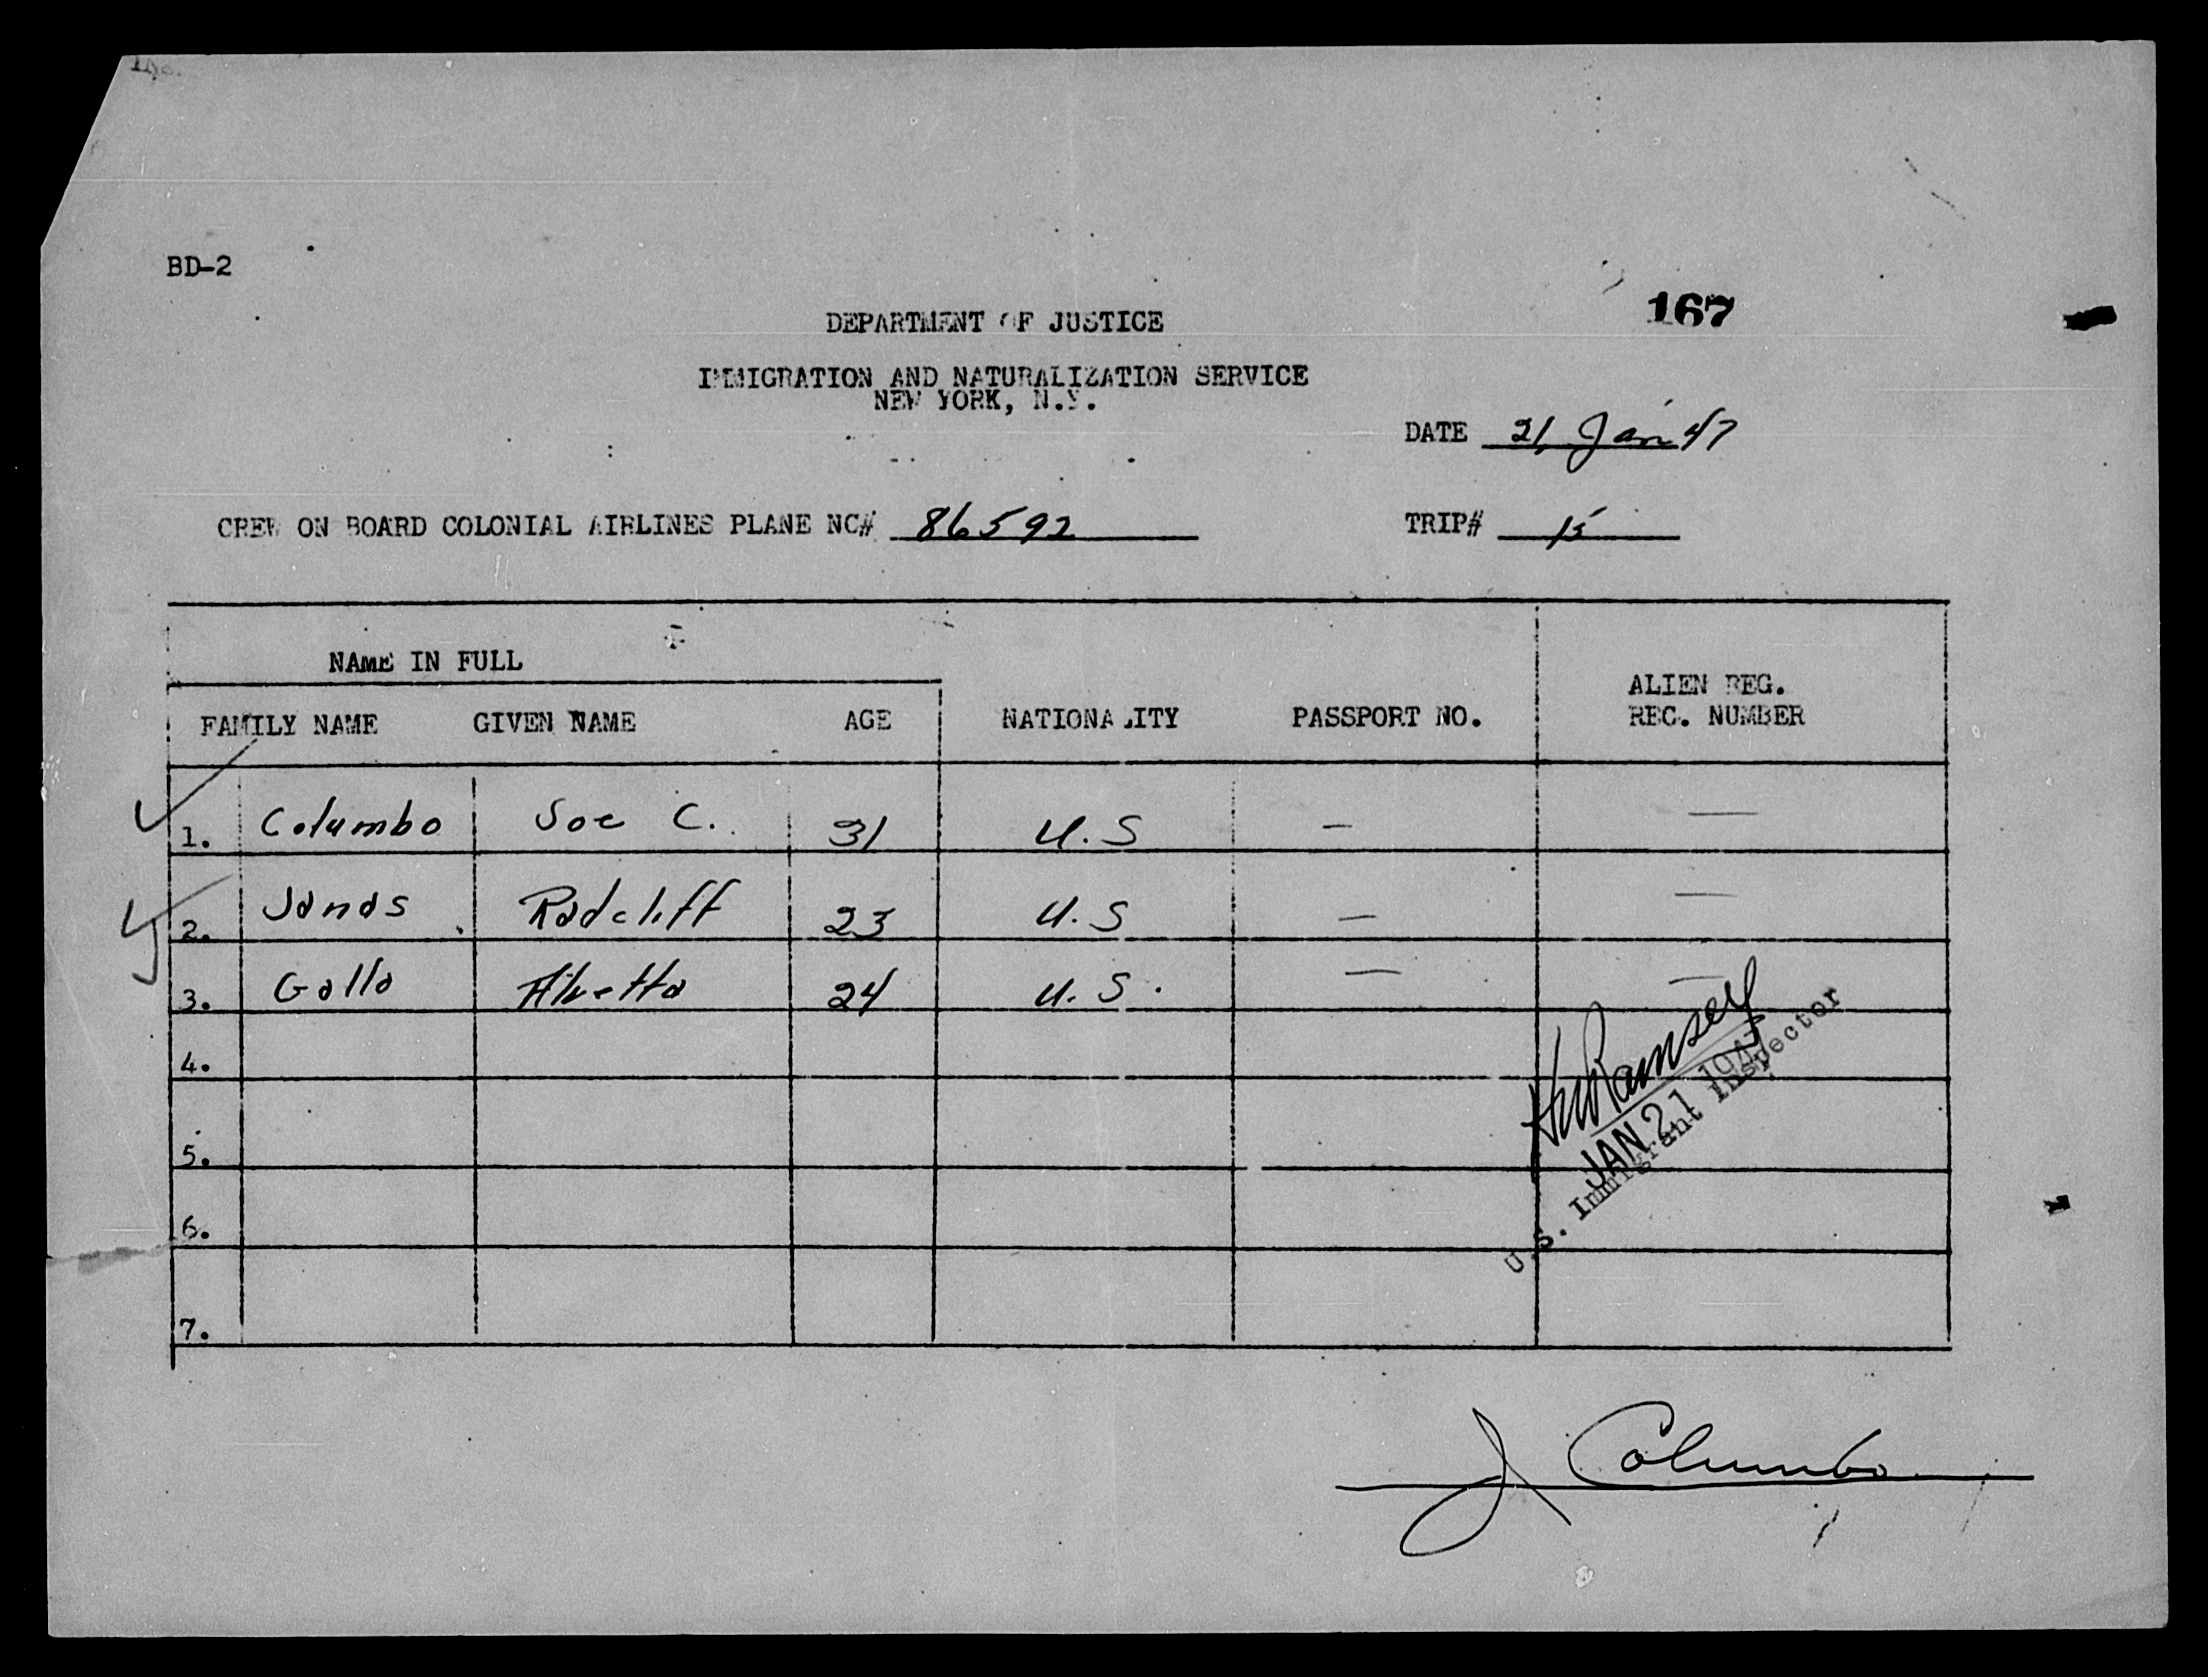 BD-2
167
DEPARTMENT OF JUSTICE
IMMIGRATION AND NATURALIZATION SERVICE
NEW YORK, N.Y.
DATE 21 Jan 47
CREW ON BOARD COLONIAL AIRLINES PLANE NC# 86592 TRIP# 15
NAME IN FULL
FAMILY NAME GIVEN NAME AGE NATIONALITY PASSPORT NO. ALIEN REG. REC. NUMBER
1. Columbo Joe C. 31 U.S — —
2. Janas Radcliff 23 U.S — —
3. Gallo Alvetta 24 U.S. — —
4.
5.
6.
7.
Ramsey
JAN 21 1947
U.S. Immigrant Inspector
J Columbo